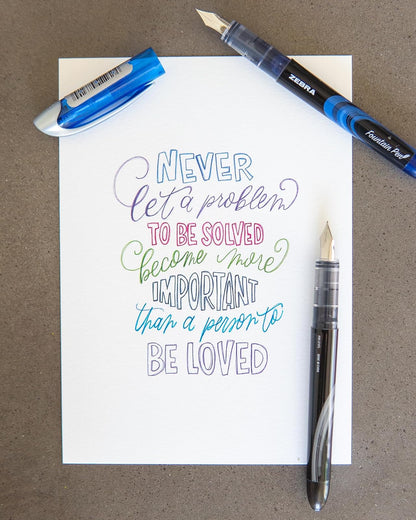 NEVER
let a problem
TO BE SOLVED
become more
IMPORTANT
than a person to
BE LOVED
ZEBRA
Fountain Pen